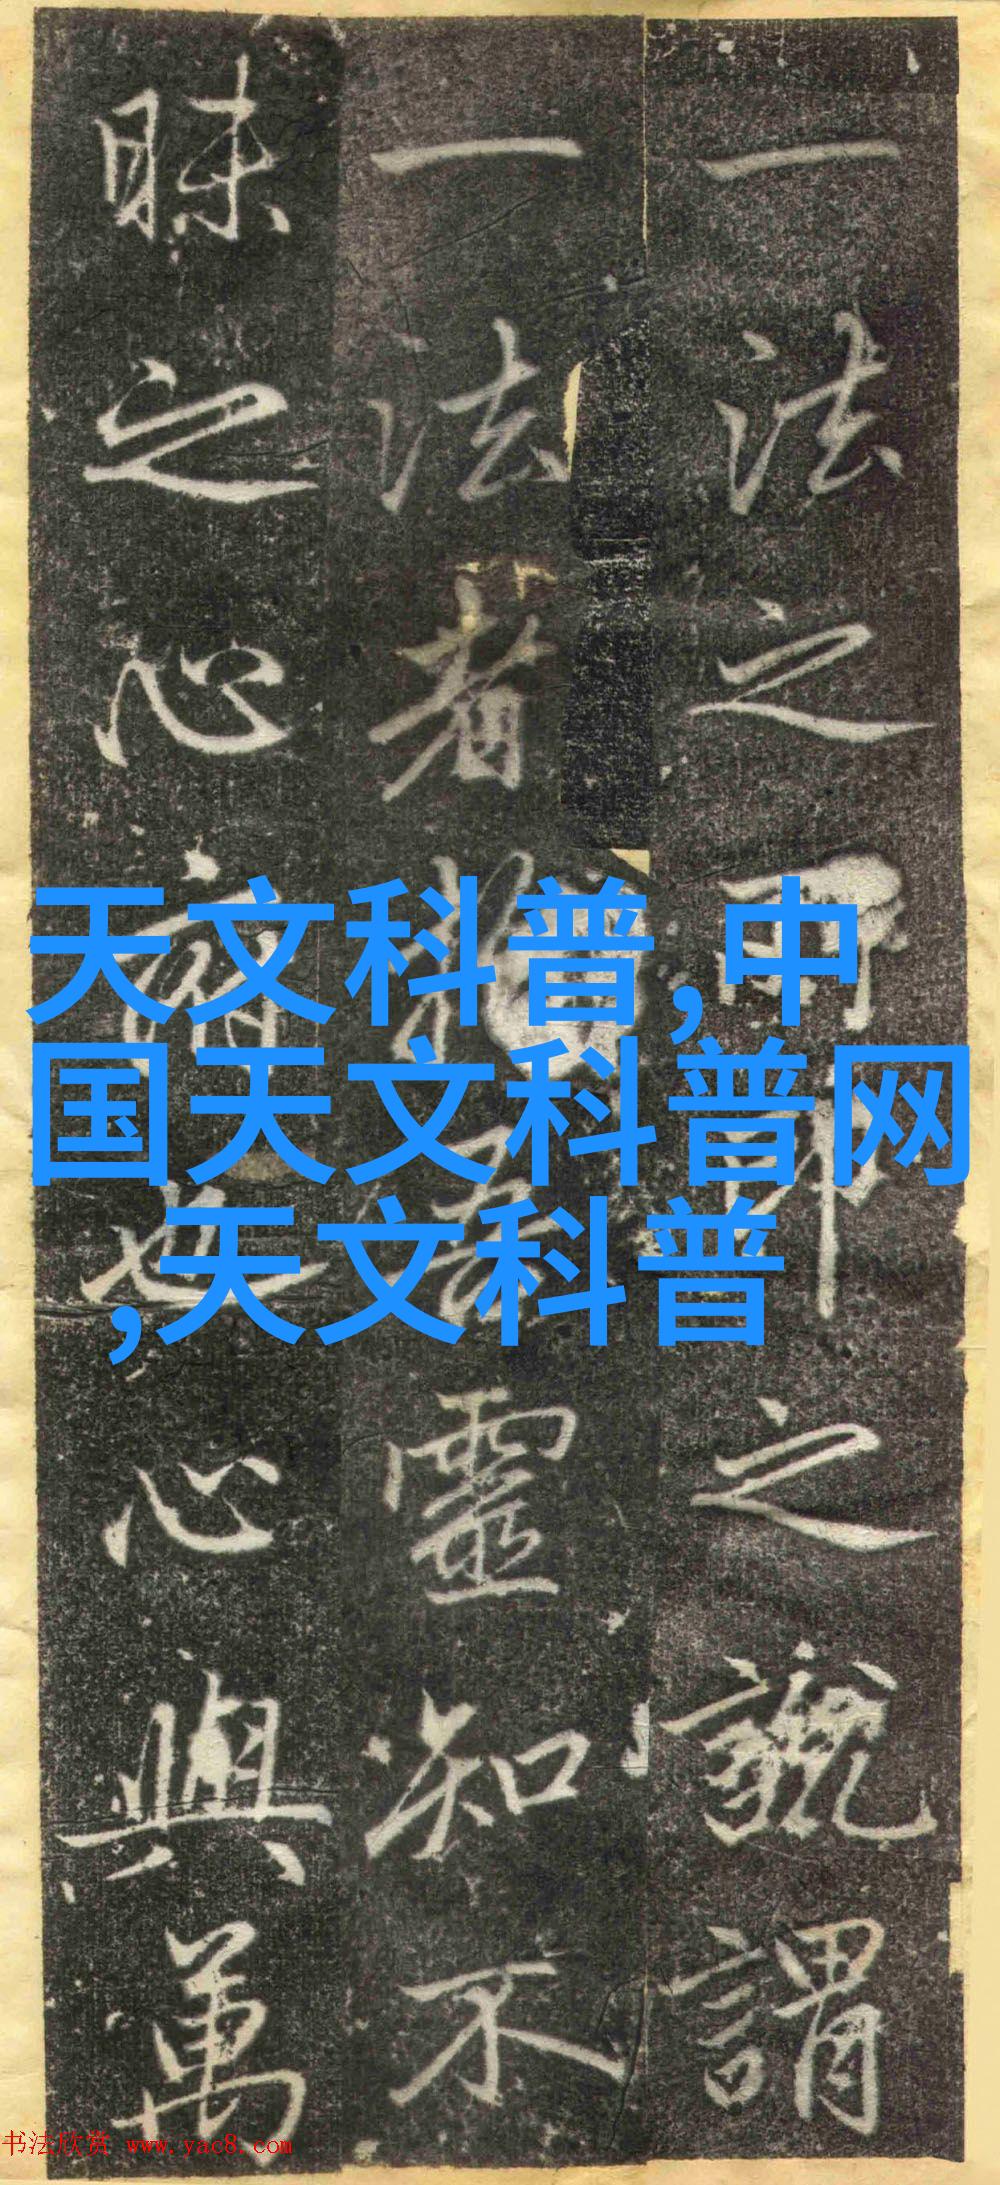 一法之印之謂
一法者靈知不
昧之心也心與萬
天文科普,中
国天文科普网
,天文科普
书法欣赏 www.yac8.com